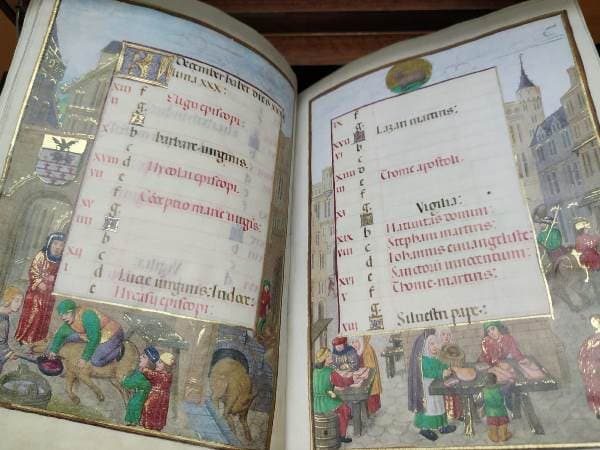 KL December habet dies XXXI
luna XXX:
XIII f Eligii episcopi:
II g
X A
b Barbare virginis:
XVIII c
VII d Nycolai episcopi.
e
XV f Conceptio marie virgis:
IIII g
A
XII b
I c
d Lucie virginis: Iudoc
e Nycasii episcopi:
IX f
g
XVII A Lazari martiris:
VI b
c
XIIII d
III e Thome apostoli:
f
XI g
A Vigilia:
XIX b Nativitas domini:
VIII c Stephani martiris:
d Iohannis euangeliste:
XVI e Sanctorum innocentum:
V f Thome martiris:
g
XIII A Silvestri pape: